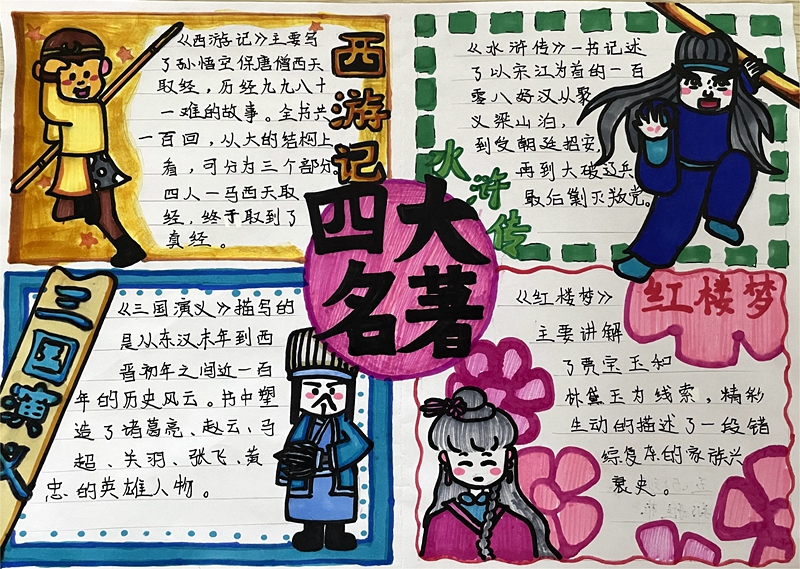 四大
名著
西游记
《西游记》主要写
了孙悟空保唐僧西天
取经，历经九九八十
一难的故事。全书共
一百回，从大的结构上
看，可分为三个部分。
四人一马西天取
经，终于取到了
真经。
水浒传
《水浒传》一书记述
了以宋江为首的一百
零八好汉从聚
义梁山泊，
到受朝廷招安，
再到大破辽兵
最后剿灭叛党。
三国演义
《三国演义》描写的
是从东汉末年到西
晋初年之间近一百
年的历史风云。书中塑
造了诸葛亮、赵云、马
超、关羽、张飞、黄
忠的英雄人物。
红楼梦
《红楼梦》
主要讲解
了贾宝玉和
林黛玉为线索，精彩
生动的描述了一段错
综复杂的家族兴
衰史。